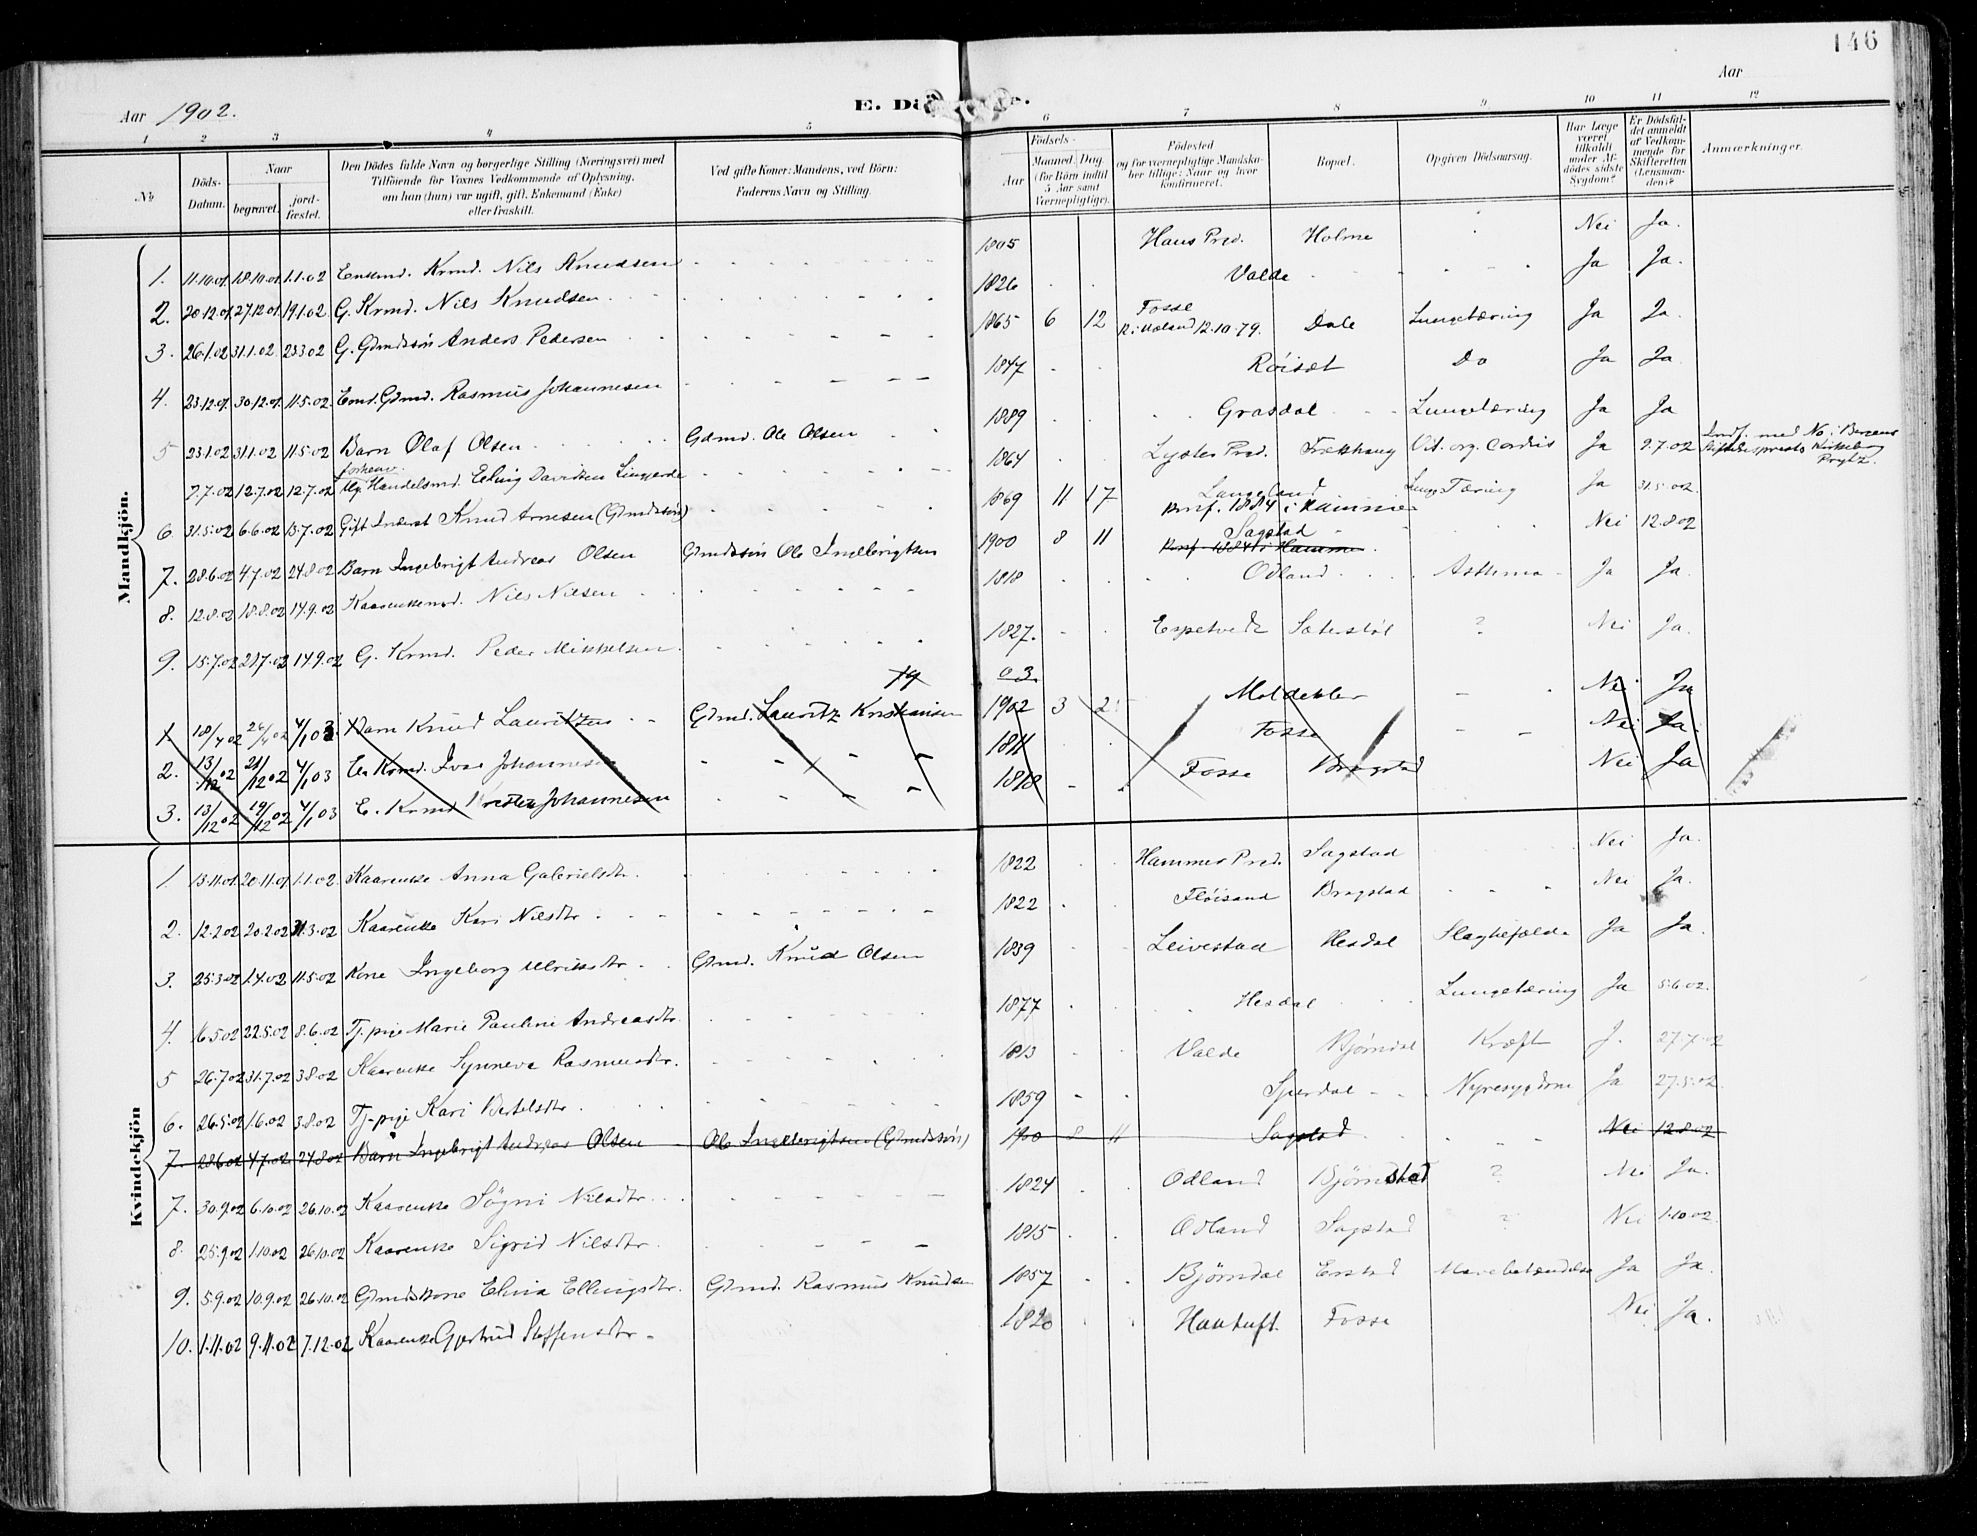 146
Aar 1902.
E. Dö
Aar
1 2 3 4 5 6 7 8 9 10 11 12
No
Döds-
Datum.
Naar
begravet.
jord-
fæstet.
Den Dödes fulde Navn og borgerlige Stilling (Næringsvei) med
Tilföiende for Voxnes Vedkommende af Oplysning,
om han (hun) var ugift, gift, Enkemand (Enke)
eller fraskilt.
Ved gifte Koner: Mandens, ved Börn:
Faderens Navn og Stilling.
Födsels-
Aar
Maaned. Dag.
(for Börn indtil
5 Aar samt
Værnepligtige).
Födested
og for værnepligtige Mandska-
ber tillige: Naar og hvor
konfirmeret.
Bopæl.
Opgiven Dödsaarsag.
Har Læge
været
tilkaldt
under Af-
dödes sidste
Sygdom?
Er Dödsfal-
det anmeldt
af Vedkom-
mende for
Skifteretten
(Lensman-
den)?
Anmærkninger.
Mandkjön.
1. 11.10.01 18.10.01 1.1.02 Enkemd. Krmd. Nils Knudsen 1805 Haus Pred. Holme Nei Ja.
2. 20.12.01 27.12.01 19.1.02 G. Krmd. Nils Knudsen 1826 Valde Ja Ja.
3. 26.1.02 31.1.02 23.3.02 G. Gdmdssön Anders Pedersen 1865 6 12 Fosse
12.10.79. Dale Lungetæring Ja Ja.
4. 23.12.01 30.12.01 11.5.02 Emd. Gdmd. Rasmus Johannesen 1847 Röisæt Do Ja Ja.
5 23.1.02 31.1.02 11.5.02 Barn Olaf Olsen Gdmd. Ole Olsen 1889 Grasdal Lungetæring Ja Ja
forhenv.
9.7.02 12.7.02 12.7.02 Ug. Handelsmd. Elling Davidsen Lingjerde 1864 Lyster Pred. Trækhaug Vit. org. cordis Ja 9.7.02 Indf. med No i Bergens
Prytz.
6. 31.5.02 6.6.02 13.7.02 Gift Inderst Knud Arnesen (Gdmdssön) 1869 11 17 Langeland
Konf. 1884 i Hammer Lunge Tæring Ja 31.5.02.
7. 28.6.02 4.7.02 24.8.02 Barn Ingebrigt Andreas Olsen Gdmdssön Ole Ingebrigtsen 1900 8 11 Sagstad
Konf. 1884 i Hammer Nei 12.8.02
8. 12.8.02 18.8.02 14.9.02 Kaarenkemd. Nils Nilsen 1818 Odland Asthma Ja Ja.
9. 15.7.02 21.7.02 14.9.02 G. Krmd. Peder Mikkelsen 1827. Espetvedt Sæterstöl ? Nei Ja.
03
1. 18/4 02 26/4 02 4/1 03 Barn Knud Lauritzen Gdmd. Lauritz Kristiansen 1902 3 2 Moldekler Nei Ja
2. 13/12 02 21/12 02 4/1 03 E. Krmd. Ivar Johannesen 1811 Fosse Nei Ja.
3. 13/12 02 19/12 02 4/1 03 E. Krmd Johannesen 1818 Fosse Bragstad Nei Ja
Kvindekjön
1. 13.11.01 20.11.01 1.1.02 Kaarenke Anna Gabrielsdtr. 1822 Hammer Pred. Sagstad Nei Ja.
2. 12.2.02 20.2.02 31.3.02 Kaarenke Kari Nilsdtr 1822 Flöisand Bragstad Nei Ja.
3. 25.3.02 1.4.02 11.5.02 Kone Ingeborg Ulriksdtr. Gdmd. Knud Olsen 1839 Leivestad Hesdal Slagtilfælde Ja Ja.
4. 16.5.02 22.5.02 8.6.02 Tj.pige Marie Pauline Andreasdtr. 1877 Hesdal Lungetæring Ja 5.6.02.
5 26.7.02 31.7.02 3.8.02 Kaarenke Synneva Rasmusdtr. 1813 Valde Bjørndal Kræft J. 27.7.02
6. 26.5.02 1.6.02 3.8.02 Tj-pige Kari Bertelsdtr. 1859 Sperdal Nyresygdom Ja 27.5.02.
7. 28.6.02 4.7.02 24.8.02 Barn Ingebrigt Andreas Olsen Ole Ingebrigtsen (Gdmdssön) 1900 8 11 Sagstad Nei 12.8.02
7. 30.9.02 6.10.02 26.10.02 Kaarenke Sögni Nilsdtr. 1824 Odland Bjørnstad ? Nei Ja.
8. 25.9.02 1.10.02 26.10.02 Kaarenke Sigrid Nilsdtr. 1815 Odland Sagstad ? Nei 1.10.02.
9. 5.9.02 10.9.02 26.10.02 Gdmdskone Elina Ellingsdtr. Gdmd. Rasmus Knudsen 1857 Bjørndal Erstad Mavebetændelse Ja Ja.
10. 1.11.02 9.11.02 7.12.02 Kaarenke Gjertrud Steffensdtr. 1820 Hantuft Fosse Nei Ja.